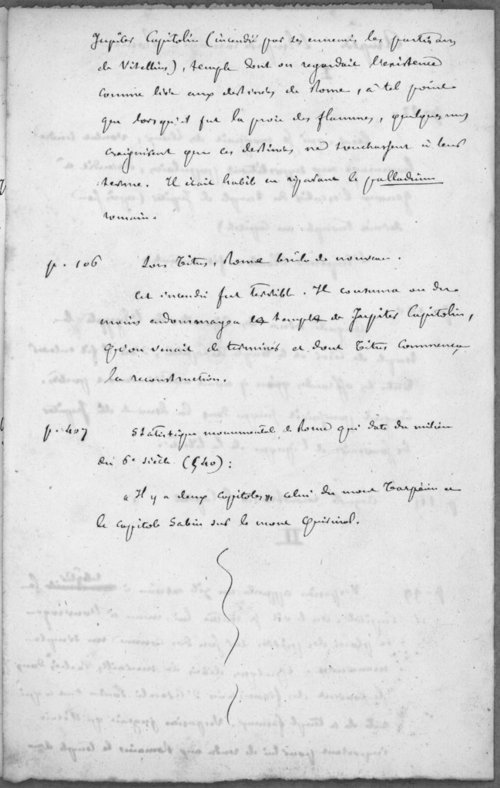 Jupiter Capitolin (incendié par ses ennemis les partisans
de Vitellius), temple dont on regardait l'existence
comme liée aux destinées de Rome, à tel point
que lorsqu'il fut la proie des flammes, quelques uns
craignirent que ces destinées ne touchassent à leur
terme. Il était habile en réparant le palladium
romain.
p. 106 Sous Titus, Rome brûle de nouveau.
Cet incendie fut terrible. Il consuma ou du
moins endommagea le temple de Jupiter Capitolin,
qu'on venait de terminer et dont Titus commença
la reconstruction.
p. 407 Statistique monumentale de Rome qui date du milieu
du 6e siècle (540) :
« Il y a deux capitoles, celui du mont Tarpéien et
le capitole Sabin sur le mont Quirinal.